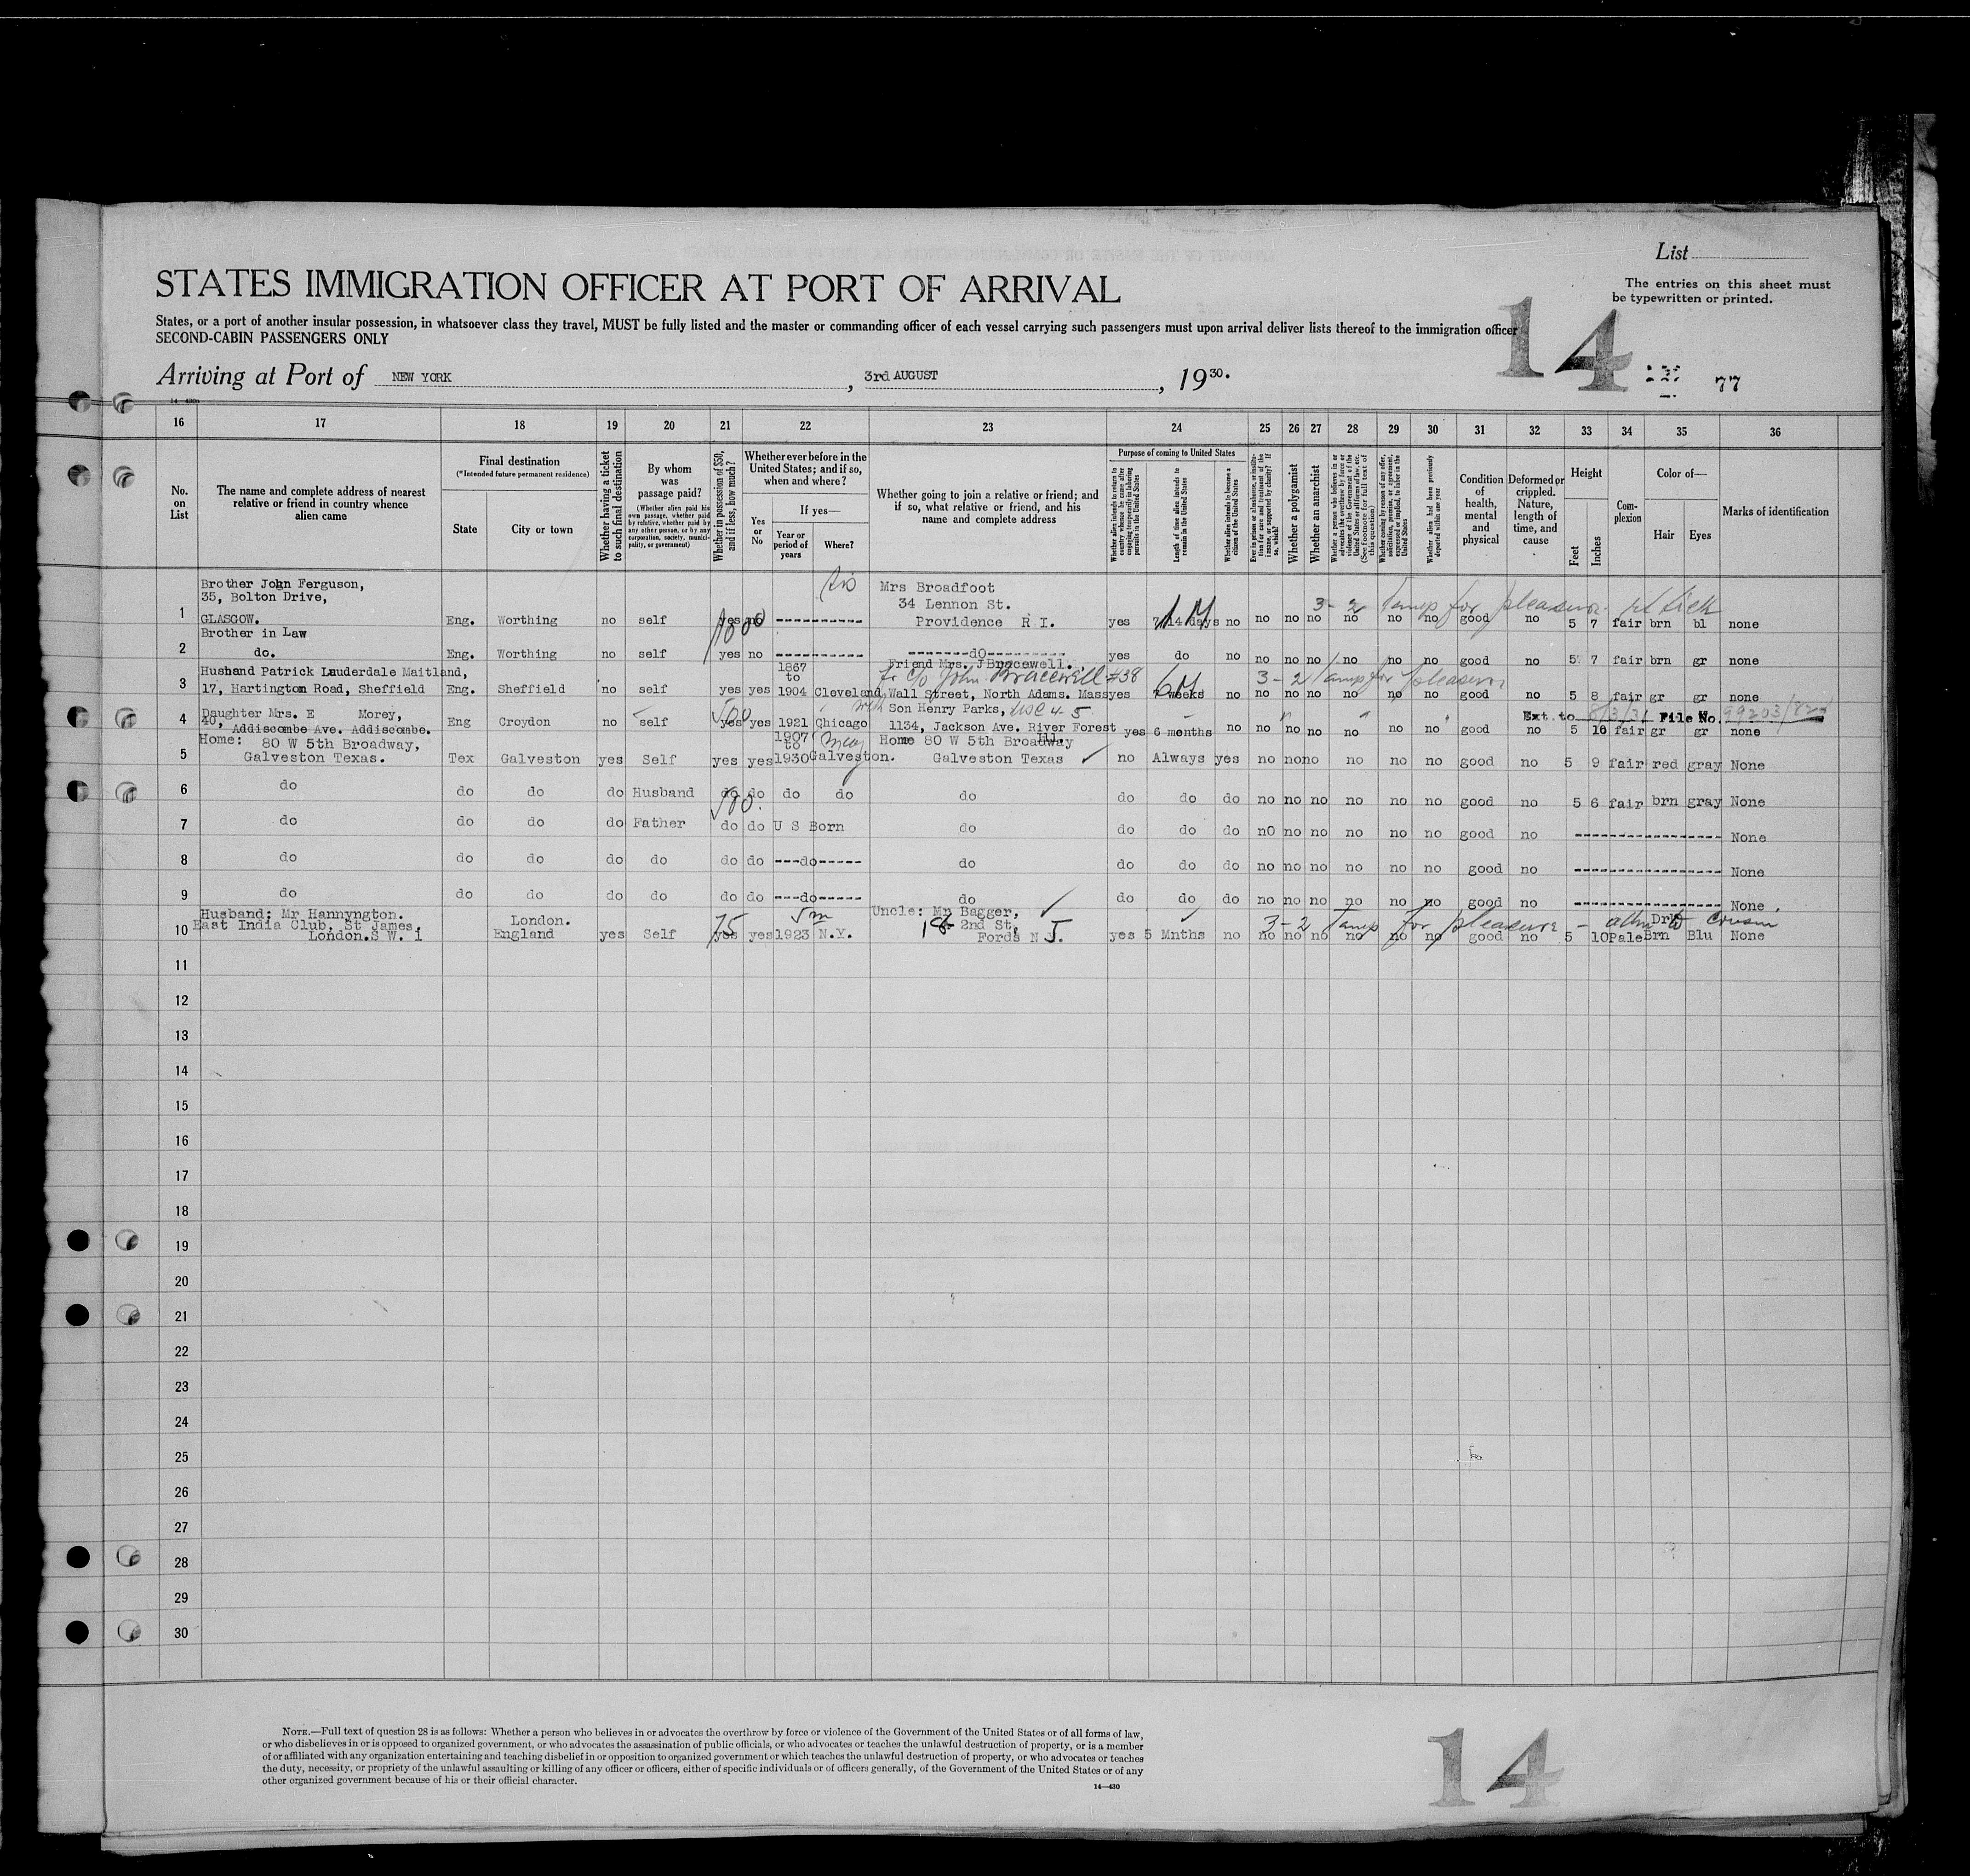 List
The entries on this sheet must
be typewritten or printed.
STATES IMMIGRATION OFFICER AT PORT OF ARRIVAL
14
States, or a port of another insular possession, in whatsoever class they travel, MUST be fully listed and the master or commanding officer of each vessel carrying such passengers must upon arrival deliver lists thereof to the immigration officer
SECOND-CABIN PASSENGERS ONLY
Arriving at Port of NEW YORK, 3rd AUGUST, 1930.
77
16 17 18 19 20 21 22 23 24 25 26 27 28 29 30 31 32 33 34 35 36
No. on List
The name and complete address of nearest relative or friend in country whence alien came
Final destination
(*Intended future permanent residence)
State
City or town
Whether having a ticket to such final destination
By whom was passage paid?
(Whether alien paid his own passage, whether paid by relative, whether paid by any other person, or by any corporation, society, municipality, or government)
Whether in possession of $50, and if less, how much?
Whether ever before in the United States; and if so, when and where?
Yes or No
If yes—
Year or period of years
Where?
Whether going to join a relative or friend; and if so, what relative or friend, and his name and complete address
Purpose of coming to United States
Whether alien intends to return to country whence he came after engaging temporarily in laboring pursuits in the United States
Length of time alien intends to remain in the United States
Whether alien intends to become a citizen of the United States
Ever in prison or almshouse, or institution for care and treatment of the insane, or supported by charity? If so, which?
Whether a polygamist
Whether an anarchist
Whether a person who believes in or advocates the overthrow by force or violence of the Government of the United States or all forms of law, etc. (See footnote for full text of this question)
Whether coming by reason of any offer, solicitation, promise, or agreement, expressed or implied, to labor in the United States
Whether alien had been previously deported within one year
Condition of health, mental and physical
Deformed or crippled. Nature, length of time, and cause
Height
Feet
Inches
Complexion
Color of—
Hair
Eyes
Marks of identification
Brother John Ferguson, Mrs Broadfoot
35, Bolton Drive, 34 Lennon St. 3-2 Temp for pleasure
1 GLASGOW. Eng. Worthing no self yes no ---------- Providence R I. yes 14 days no no no no no no no good no 5 7 fair brn bl none
1000 1 M
Brother in Law
2 do. Eng. Worthing no self yes no ---------- --------do--------- yes do no no no no no no no good no 5 7 fair brn gr none
Husband Patrick Lauderdale Maitland, 1867 to Friend Mrs. J Bracewell.
c/o John Bracewell #38 6M 3-2 Temp for pleasure
3 17, Hartington Road, Sheffield Eng. Sheffield no self yes yes 1904 Cleveland, Wall Street, North Adams. Mass yes weeks no no no no no no no good no 5 8 fair gr gr none
Daughter Mrs. E Morey, 500 with Son Henry Parks, Ext. to 8/3/31 File No. 99203/
4 40, Addiscombe Ave. Addiscombe. Eng Croydon no self yes yes 1921 Chicago 1134, Jackson Ave. River Forest Ill. yes 6 months no no no no no no no good no 5 10 fair gr gr none
Home: 80 W 5th Broadway, 1907 to Home 80 W 5th Broadway
5 Galveston Texas. Tex Galveston yes Self yes yes 1930 Galveston. Galveston Texas no Always yes no no no no no no good no 5 9 fair red gray None
6 do do do do Husband do do do do do do do do no no no no no no good no 5 6 fair brn gray None
500.
7 do do do do Father do do U S Born do do do do no no no no no no good no ---------------- None
8 do do do do do do do ---do----- do do do do no no no no no no good no ---------------- None
9 do do do do do do do ---do----- do do do do no no no no no no good no ---------------- None
Husband: Mr Hannyngton. London. 75 5m Uncle: Mr Bagger, 3-2 Temp for pleasure - cousin
East India Club, St James, 18 2nd St, Drk
10 London.S W. 1 England yes Self yes yes 1923 N.Y. Fords N J. yes 5 Mnths no no no no no no no good no 5 10 Pale Brn Blu None
11
12
13
14
15
16
17
18
19
20
21
22
23
24
25
26
27
28
29
30
NOTE.—Full text of question 28 is as follows: Whether a person who believes in or advocates the overthrow by force or violence of the Government of the United States or of all forms of law,
or who disbelieves in or is opposed to organized government, or who advocates the assassination of public officials, or who advocates or teaches the unlawful destruction of property, or is a member
of or affiliated with any organization entertaining and teaching disbelief in or opposition to organized government or which teaches the unlawful destruction of property, or who advocates or teaches
the duty, necessity, or propriety of the unlawful assaulting or killing of any officer or officers, either of specific individuals or of officers generally, of the Government of the United States or of any
other organized government because of his or their official character.
14—430
14